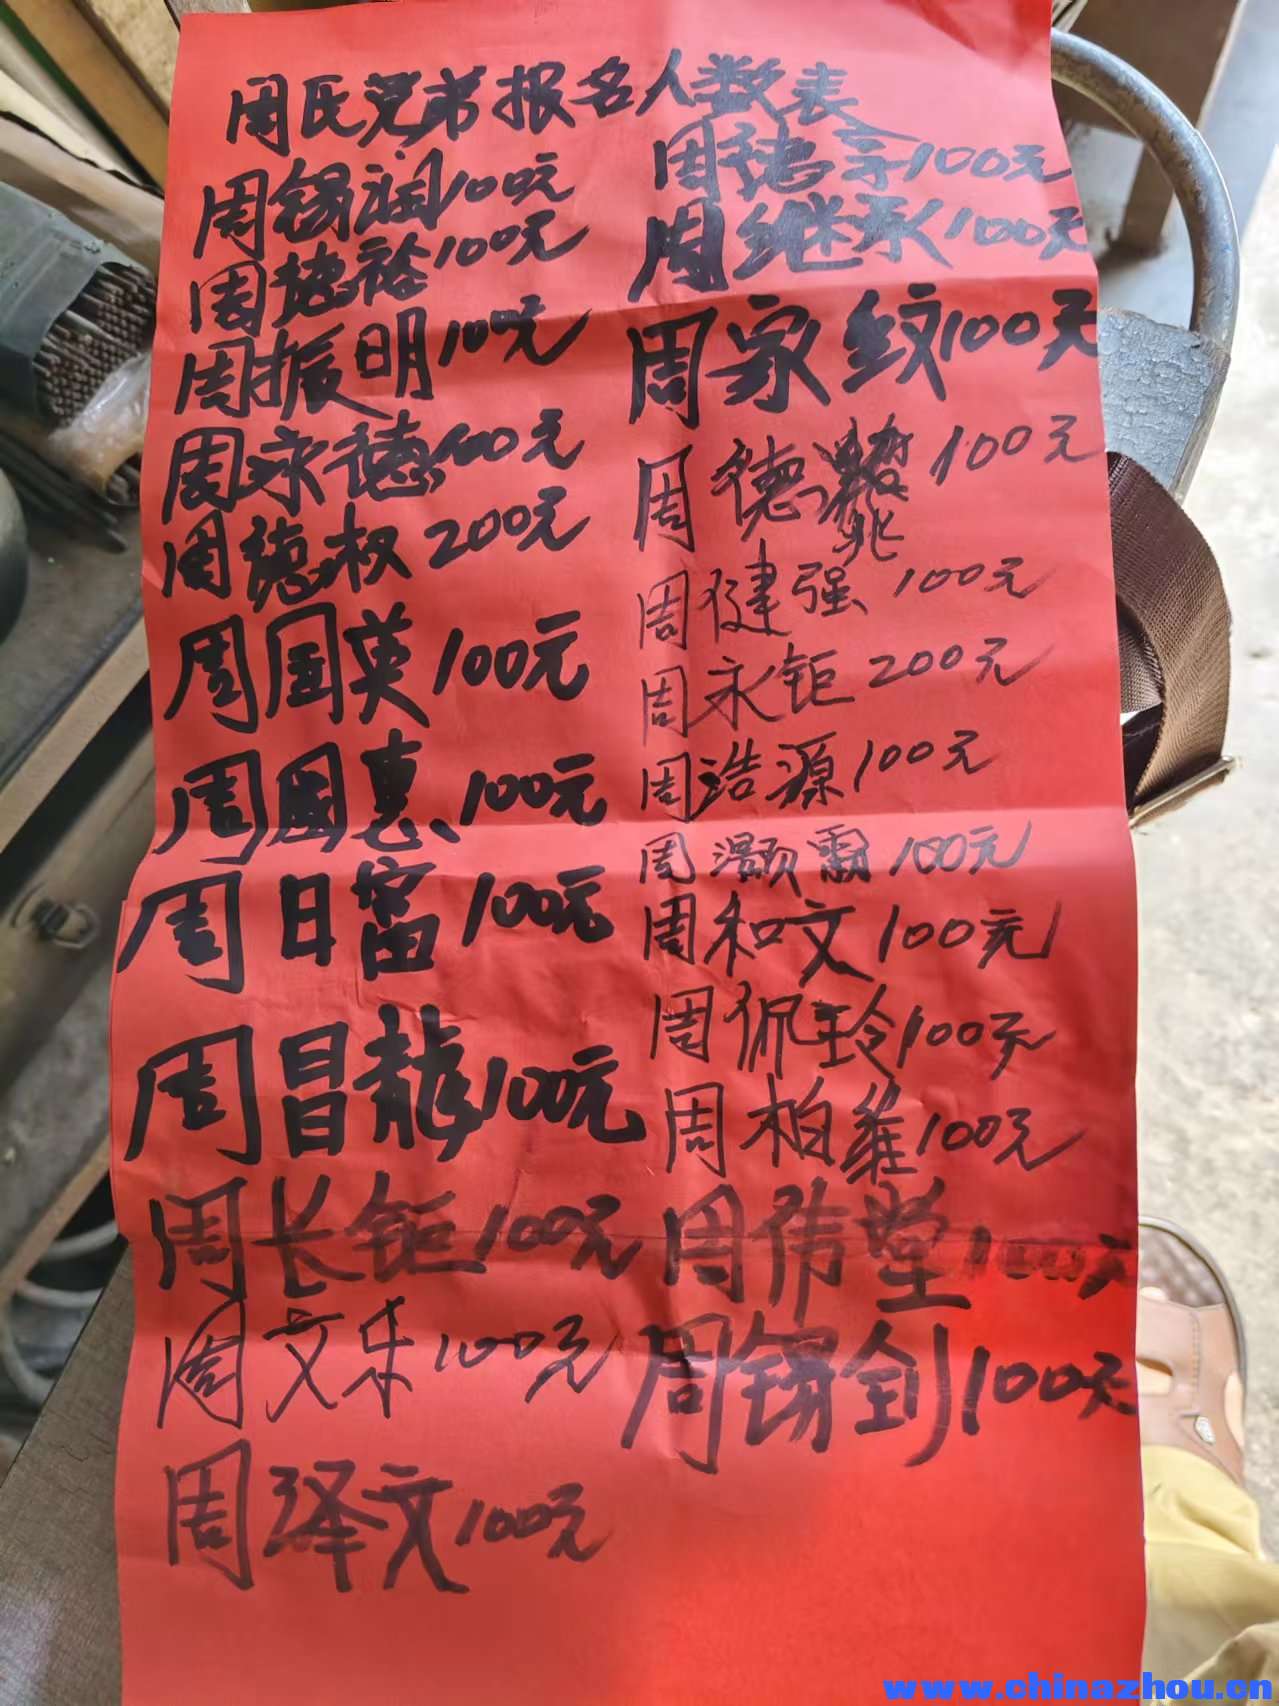 周氏兄弟报名人数表
周锡润100元
周德裕100元
周振明100元
周永德100元
周德权200元
周国英100元
周國惠100元
周日富100元
周昌龍100元
周长钜100元
周文乐100元
周泽文100元
周德宗100元
周继承100元
周家纹100元
周德 100元
周健强100元
周永钜200元
周浩源100元
周灏霸100元
周和文100元
周佩玲100元
周柏维100元
周伟堂100元
周锡剑100元
www.chinazhou.cn